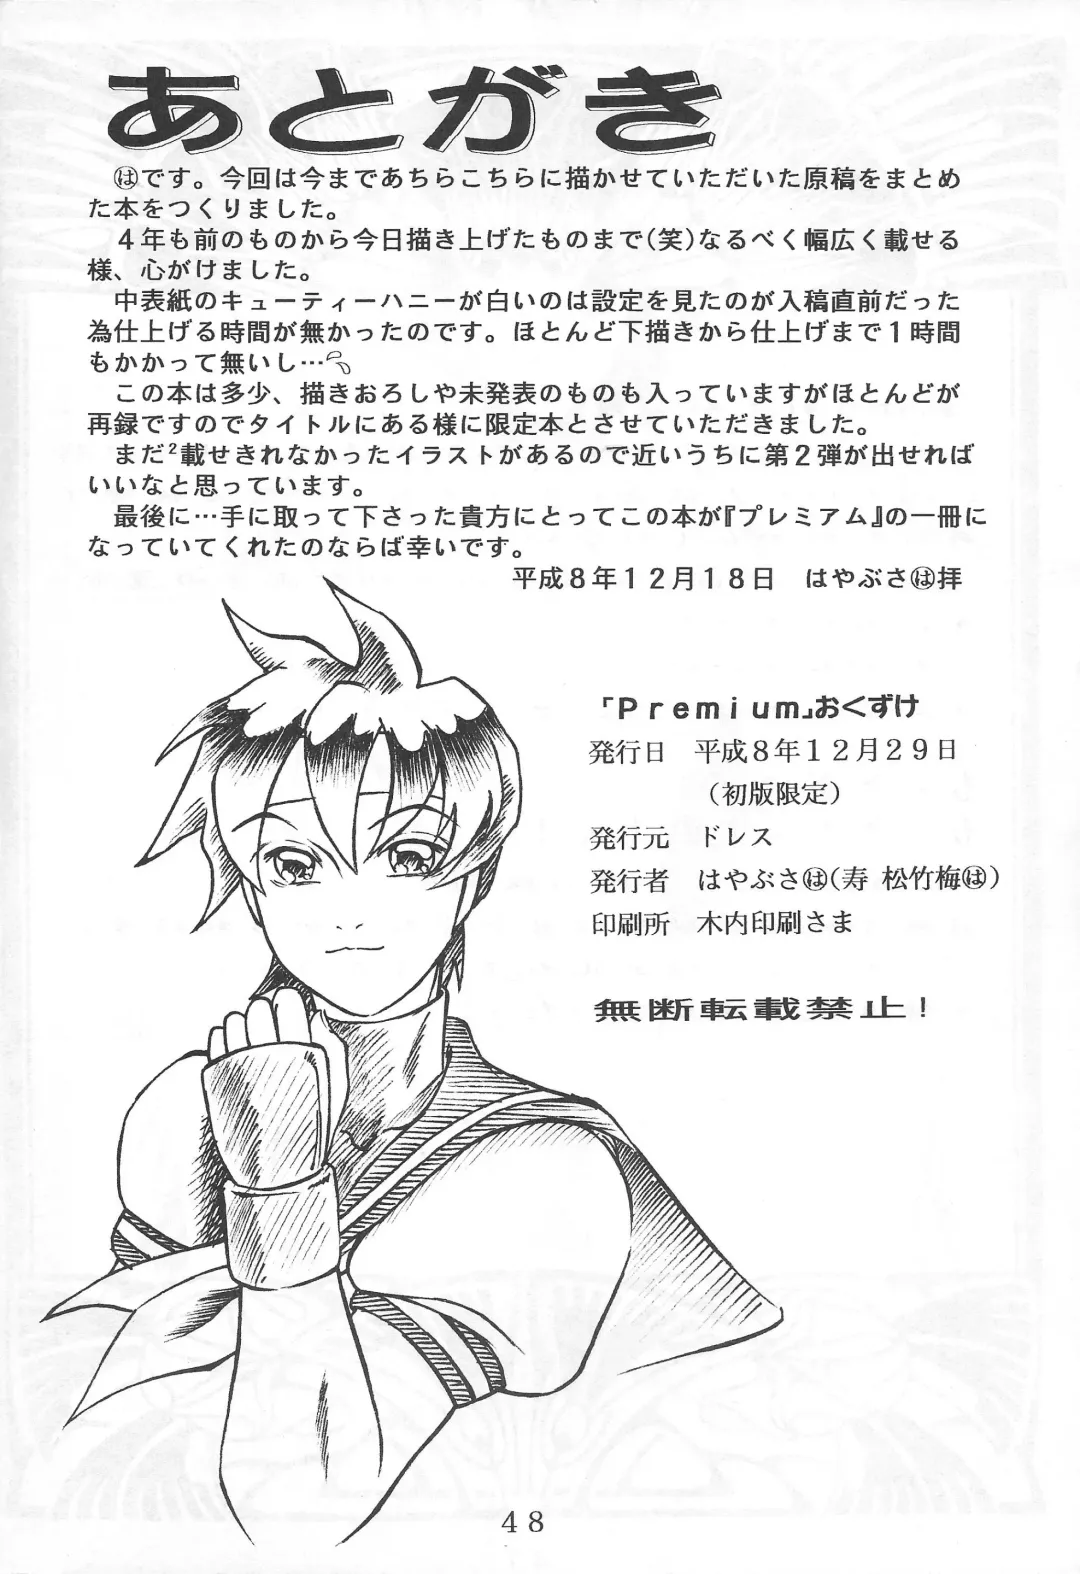 あとがき
㋩です。今回は今まであちらこちらに描かせていただいた原稿をまとめ
た本をつくりました。
４年も前のものから今日描き上げたものまで(笑)なるべく幅広く載せる
様、心がけました。
中表紙のキューティーハニーが白いのは設定を見たのが入稿直前だった
為仕上げる時間が無かったのです。ほとんど下描きから仕上げまで１時間
もかかって無いし…
この本は多少、描きおろしや未発表のものも入っていますがほとんどが
再録ですのでタイトルにある様に限定本とさせていただきました。
まだ²載せきれなかったイラストがあるので近いうちに第２弾が出せれば
いいなと思っています。
最後に…手に取って下さった貴方にとってこの本が『プレミアム』の一冊に
なっていてくれたのならば幸いです。
平成８年１２月１８日　はやぶさ㋩拝
「Ｐｒｅｍｉｕｍ」おくずけ
発行日　平成８年１２月２９日
（初版限定）
発行元　ドレス
発行者　はやぶさ㋩(寿 松竹梅㋩)
印刷所　木内印刷さま
無断転載禁止！
４８